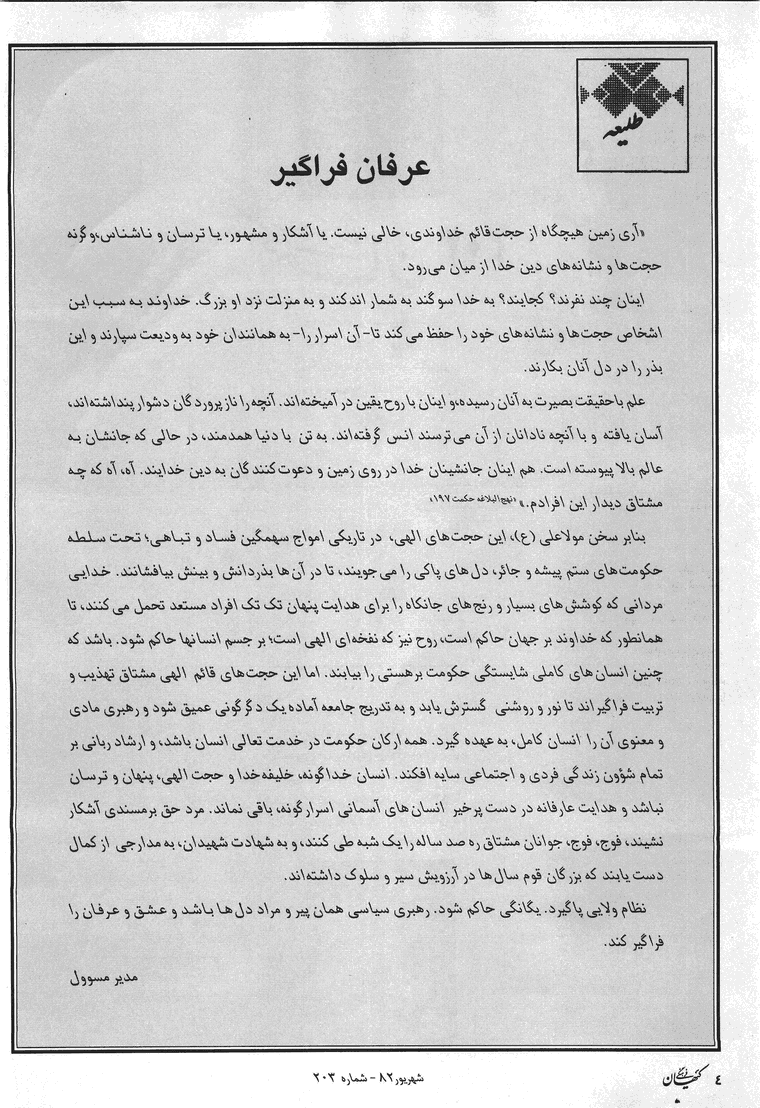 طلیعه
عرفان فراگیر
«آری زمین هیچگاه از حجت قائم خداوندی، خالی نیست. یا آشکار و مشهور، یا ترسان و ناشناس،وگرنه
حجت‌ها و نشانه‌های دین خدا از میان می‌رود.
اینان چند نفرند؟ کجایند؟ به خدا سوگند به شمار اندکند و به منزلت نزد او بزرگ. خداوند به سبب این
اشخاص حجت‌ها و نشانه‌های خود را حفظ می کند تا- آن اسرار را- به همانندان خود به ودیعت سپارند و این
بذر را در دل آنان بکارند.
علم باحقیقت بصیرت به آنان رسیده،و اینان با روح یقین در آمیخته‌اند. آنچه را نازپروردگان دشوار پنداشته‌اند،
آسان یافته و با آنچه نادانان از آن می‌ترسند انس گرفته‌اند. به تن با دنیا همدمند، در حالی که جانشان به
عالم بالا پیوسته است. هم اینان جانشینان خدا در روی زمین و دعوت کنندگان به دین خدایند. آه، آه که چه
مشتاق دیدار این افرادم.» «نهج‌البلاغه حکمت ۱۹۷»
بنابر سخن مولاعلی (ع)، این حجت‌های الهی، در تاریکی امواج سهمگین فساد و تباهی؛ تحت سلطه
حکومت‌های ستم پیشه و جائر، دل‌های پاکی را می‌جویند، تا در آن ها بذردانش و بینش بیافشانند. خدایی
مردانی که کوشش‌های بسیار و رنج‌های جانکاه را برای هدایت پنهان تک تک افراد مستعد تحمل می کنند، تا
همانطور که خداوند بر جهان حاکم است، روح نیز که نفخه‌ای الهی است؛ بر جسم انسانها حاکم شود. باشد که
چنین انسان های کاملی شایستگی حکومت برهستی را بیابند. اما این حجت‌های قائم الهی مشتاق تهذیب و
تربیت فراگیراند تا نور و روشنی گسترش یابد و به تدریج جامعه آماده یک دگرگونی عمیق شود و رهبری مادی
و معنوی آن را انسان کامل، به عهده گیرد. همه ارکان حکومت در خدمت تعالی انسان باشد، و ارشاد ربانی بر
تمام شؤون زندگی فردی و اجتماعی سایه افکند. انسان خداگونه، خلیفه خدا و حجت الهی، پنهان و ترسان
نباشد و هدایت عارفانه در دست پرخیر انسان‌های آسمانی اسرارگونه، باقی نماند. مرد حق برمسندی آشکار
نشیند، فوج، فوج، جوانان مشتاق ره صد ساله را یک شبه طی کنند، و به شهادت شهیدان، به مدارجی از کمال
دست یابند که بزرگان قوم سال‌ها در آرزویش سیر و سلوک داشته‌اند.
نظام ولایی پاگیرد. یگانگی حاکم شود. رهبری سیاسی همان پیر و مراد دل‌ها باشد و عشق و عرفان را
فراگیر کند.
مدیر مسوول
۴ کیهان فرهنگی
شهریور ۸۲ - شماره ۲۰۳